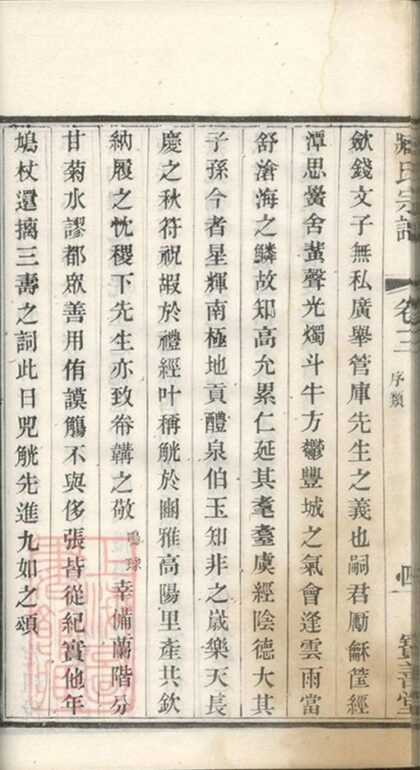 氏宗譜 卷三 序類 四 寶善堂
斂錢文子無私廣舉管庫先生之義也嗣君勵龢萤經
潭思黌舍蜚聲光燭斗牛方鬱豐城之氣會逢雲雨當
舒滄海之鱗故知高允累仁延其耄耋虞經陰德大其
子孫今者星輝南極地貢醴泉伯玉知非之歲樂天長
慶之秋符祝嘏於禮經叶稱觥於豳雅高陽里產共欽
納履之忱稷下先生亦致帣韝之敬鳴球幸備蘭階分
甘菊水謬都眾善用侑謨觴不與侈張皆從紀實他年
鳩杖還摛三壽之詞此日兕觥先進九如之頌